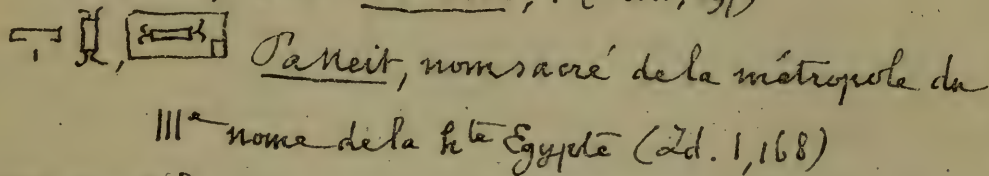 PaNeit, nom sacré de la métropole du
IIIe nome de la hte Egypte (Id. 1,168)